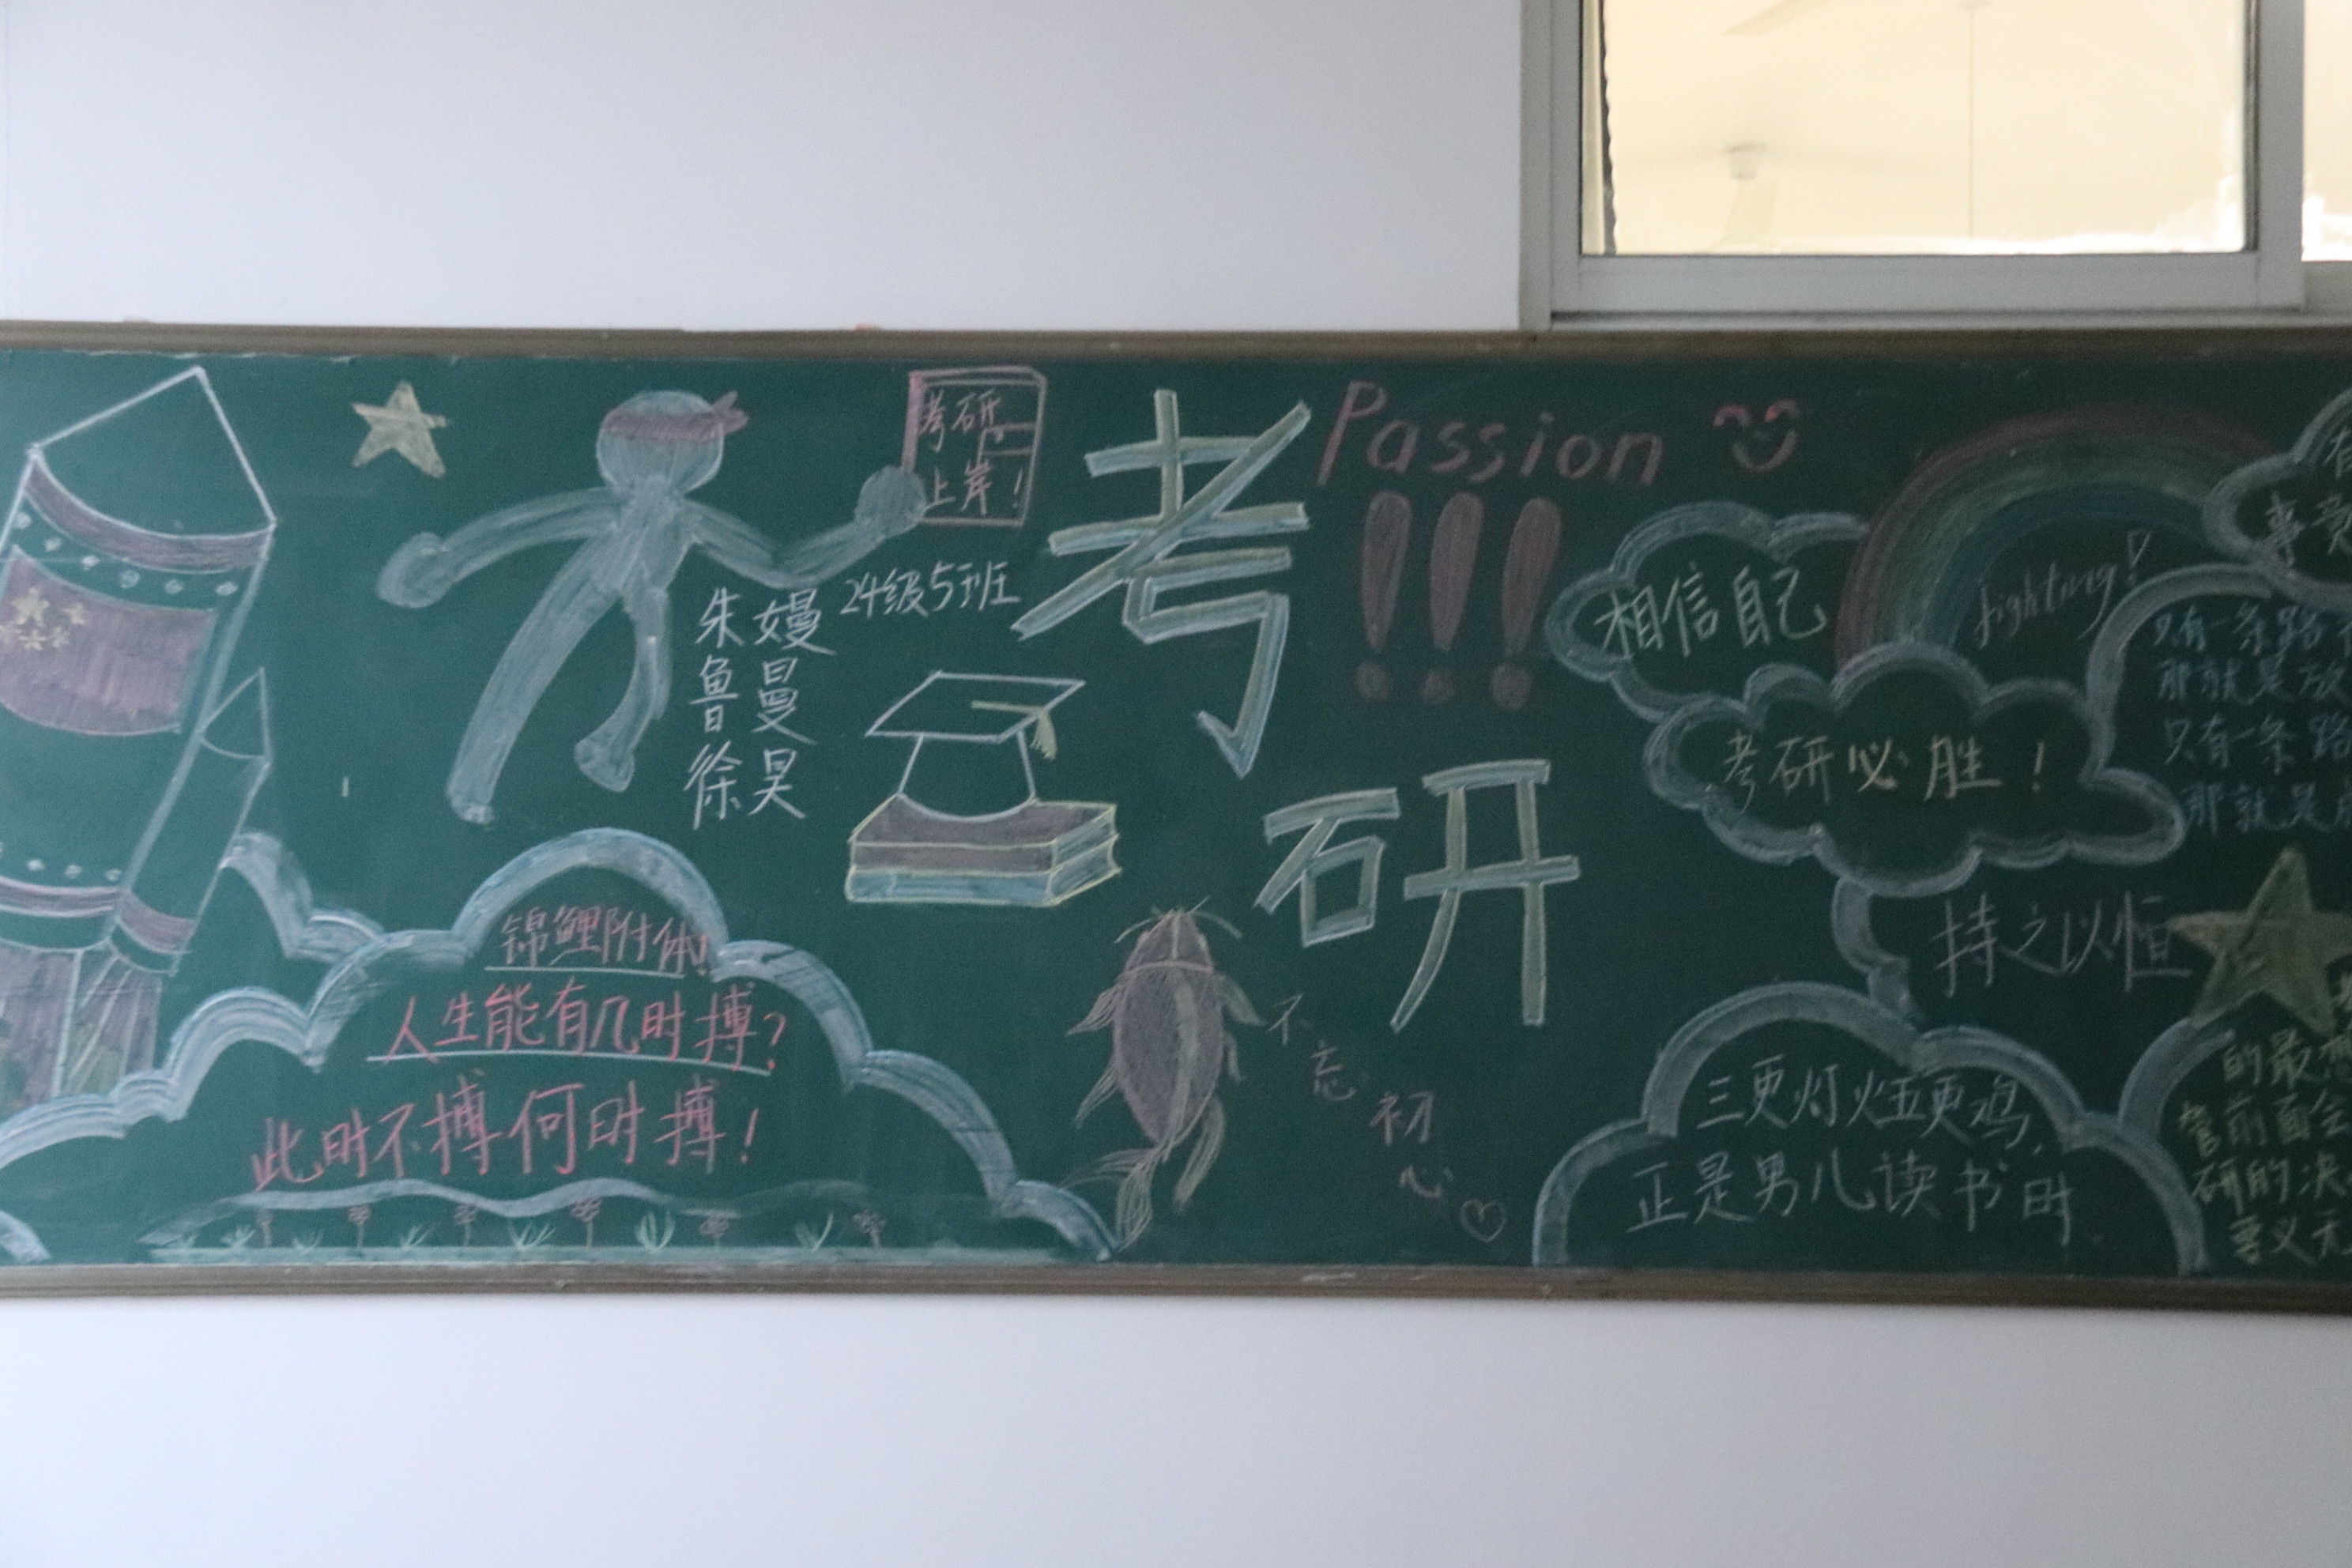 考研
上岸！
24级5班
朱嫚
鲁曼
徐昊
考研
Passion
!!!
锦鲤附体！
人生能有几时搏？
此时不搏何时搏！
不忘初心
相信自己
fighting!
考研必胜！
持之以恒
三更灯火五更鸡，
正是男儿读书时
有
事竟
只有一条路
那就是放
只有一条路
那就是
的最
管前面会
研的决
义无